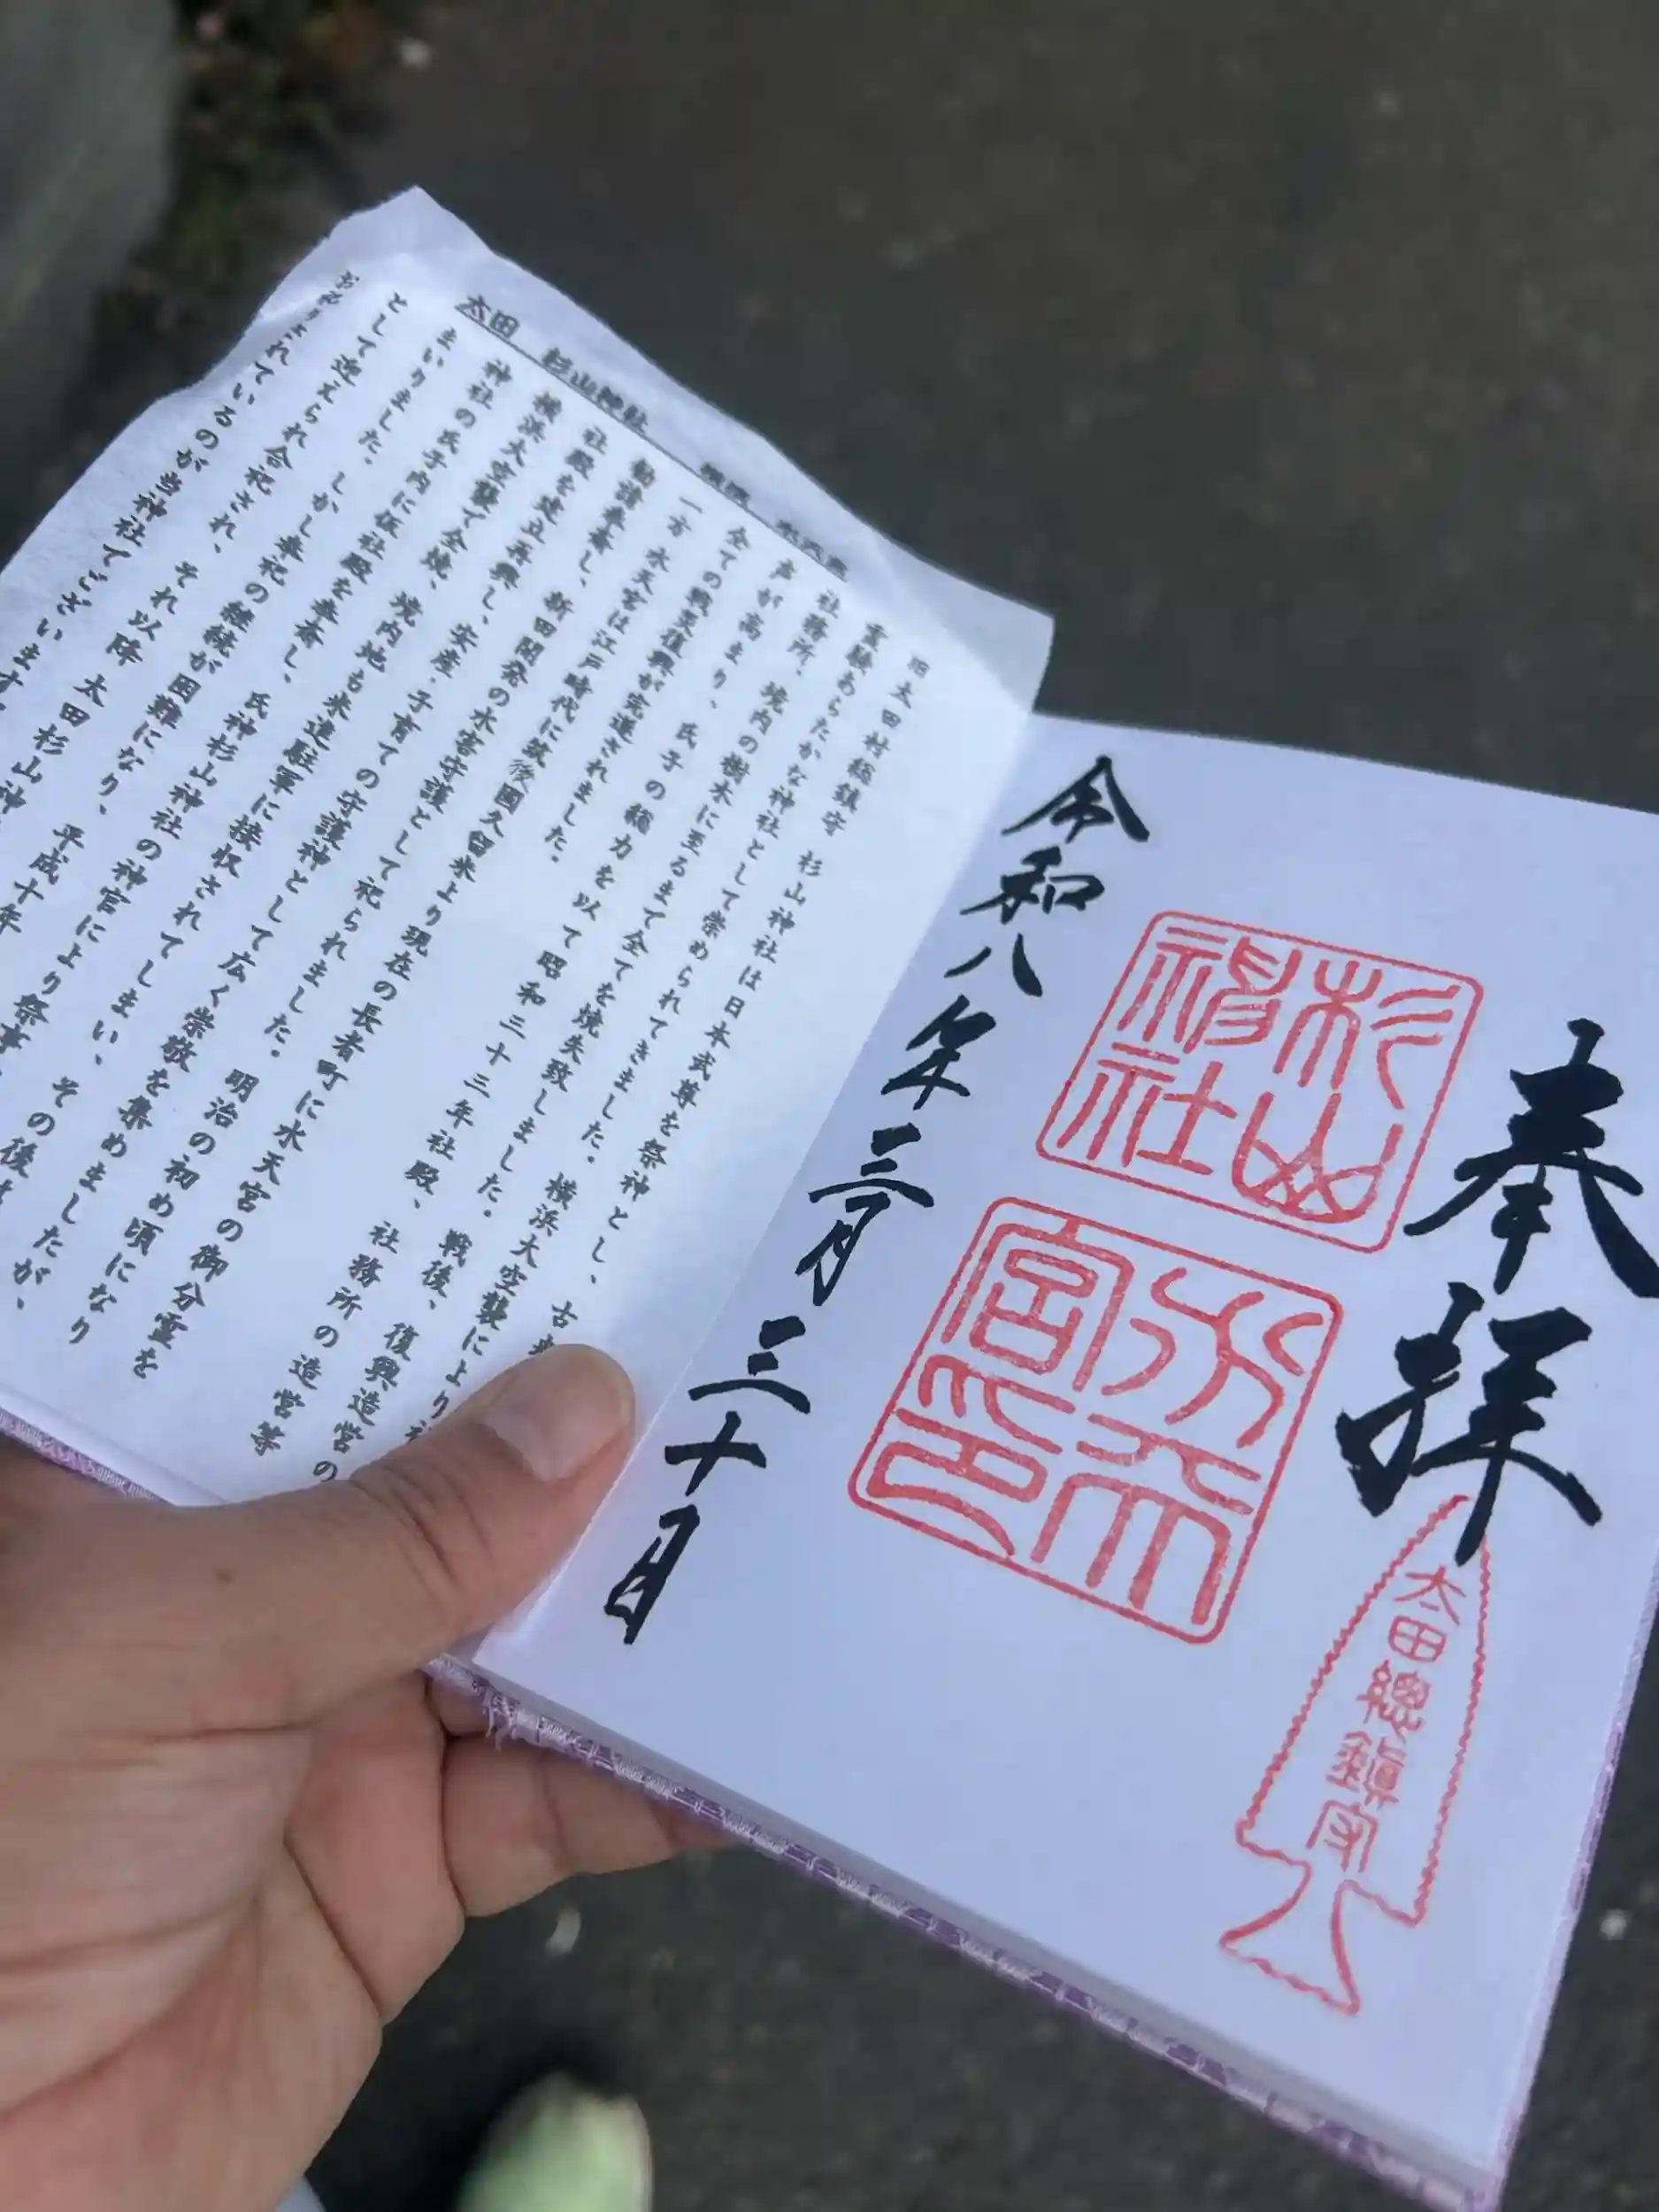 奉拝
杉山
神社
水天
宮印
太田總鎮守
令和八年三月三十日
太田 杉山神社
旧太田村総鎮守 杉山神社は日本武尊を祭神とし、古来
霊験あらたかな神社として崇められてきました。横浜大空襲により社
社務所、境内の樹木に至るまで全てを焼失致しました。戦後、復興造営の
声が高まり、氏子の総力を以て昭和三十三年社殿、社務所の造営等
全ての戦災復興が完遂されました。
一方 水天宮は江戸時代に筑後国久留米より現在の長者町に水天宮の御分霊を
勧請奉斎し、新田開発の水害守護として祀られました。明治の初め頃になり
社殿を建立再興し、安産・子育ての守護神として広く崇敬を集めましたが、
横浜大空襲で全焼、境内地も米進駐軍に接収されてしまい、その後
神社の氏子内に仮社殿を奉斎し、氏神杉山神社の神官により祭事
まいりました。しかし奉祀の継続が困難になり、平成十年
として迎えられ合祀され、それ以降 太田杉山神
お祀りされているのが当神社でございます